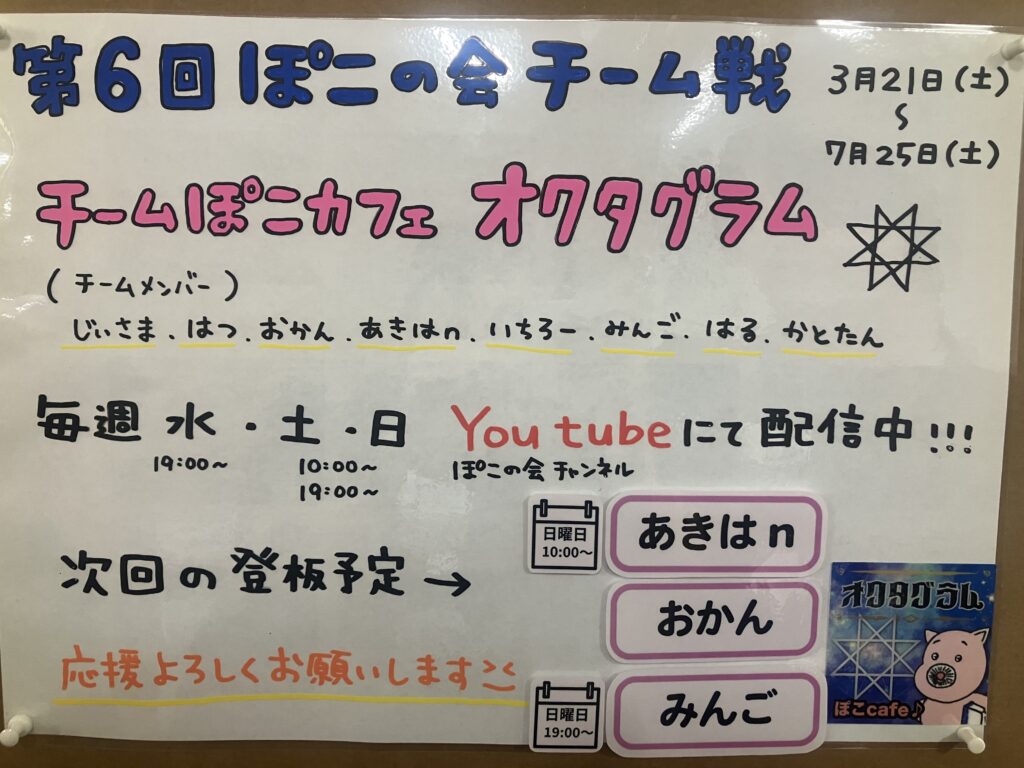 第6回 ぽこの会 チーム戦
3月21日(土)
〜
7月25日(土)
チームぽこカフェ オクタグラム
(チームメンバー)
じぃさま.はつ.おかん.あきはn.いちろー.みんご.はる.かとたん
毎週 水・土・日 Youtubeにて配信中!!!
19:00〜 10:00〜 ぽこの会チャンネル
19:00〜
日曜日
10:00〜
あきはn
次回の登板予定→
おかん
オクタグラム
ぽこcafe♪
応援よろしくお願いします
日曜日
19:00〜
みんご